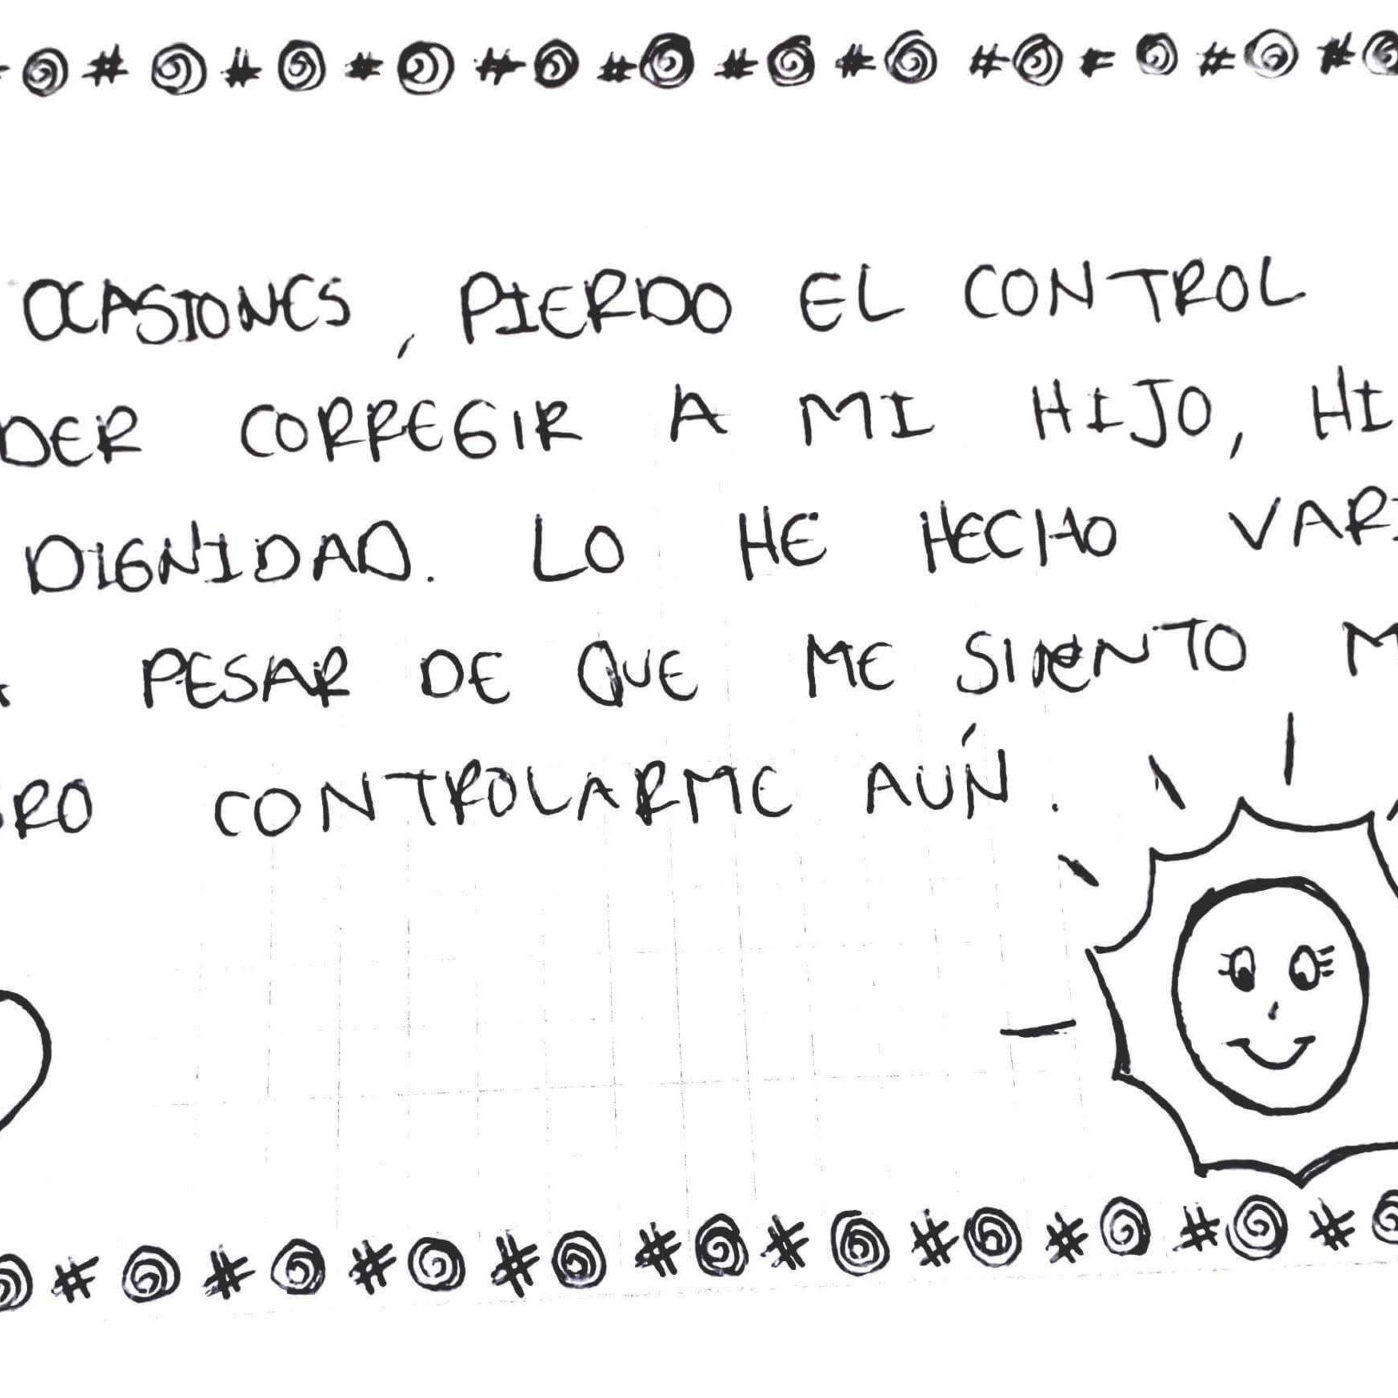 OCASIONES, PIERDO EL CONTROL
DER CORREGIR A MI HIJO, HI
DIGNIDAD. LO HE HECHO VARI
PESAR DE QUE ME SIENTO M
RO CONTROLARME AÚN.